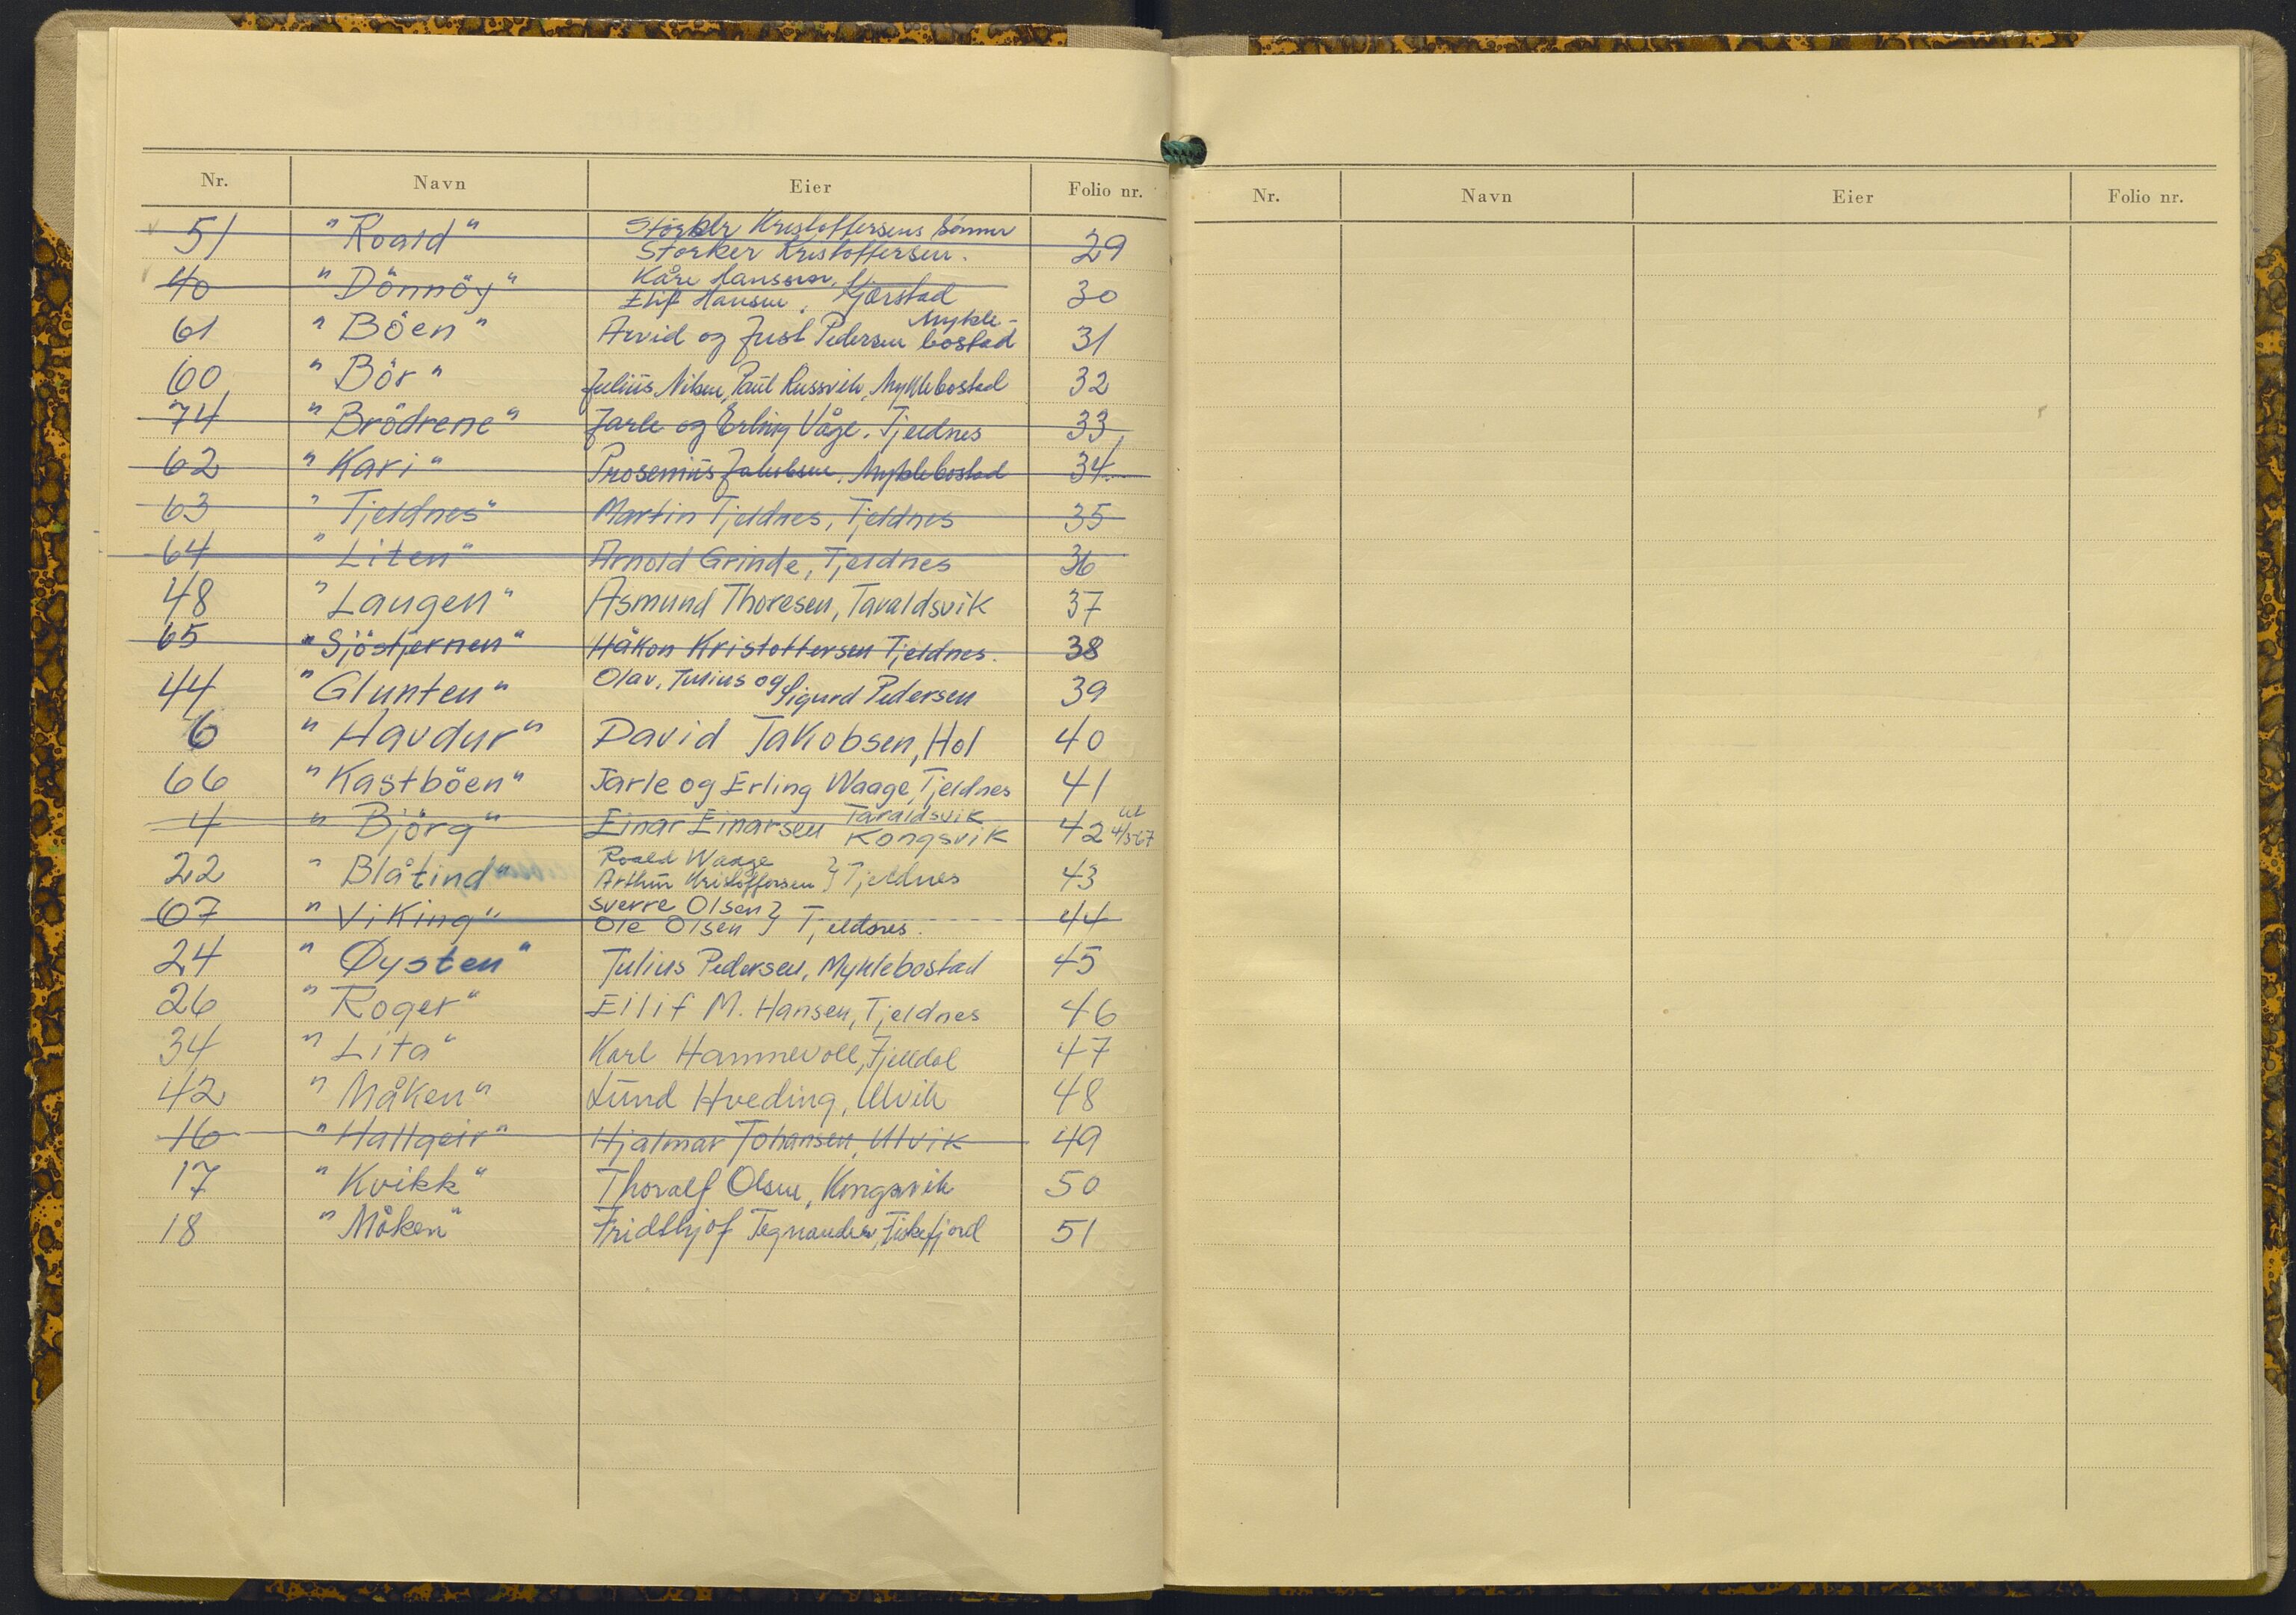 Nr. Navn Eier Folio nr.
51 "Roald" Störker Kristoffersens Sönner
Störker Kristoffersen. 29
40 "Dönnöy" Kåre Hanssen,
Eilif Hansen, Kjærstad 30
61 "Böen" Arvid og Just Pedersen Mykle-
bostad 31
60 "Bör" Julius Nilsen, Paul Russvik, Myklebostad 32
74 "Brödrene" Jarle og Erling Våge. Tjeldnes 33
62 "Kari" Prosenius Jakobsen, Myklebostad 34
63 "Tjeldnes" Martin Tjeldnes, Tjeldnes 35
64 "Liten" Arnold Grinde, Tjeldnes 36
48 "Laugen" Asmund Thoresen, Taraldsvik 37
65 "Sjöstjernen" Håkon Kristoffersen Tjeldnes. 38
44 "Glunten" Olav, Julius og
Sigurd Pedersen 39
6 "Havdur" David Jakobsen, Hol 40
66 "Kastböen" Jarle og Erling Waage, Tjeldnes 41
4 "Björg" Einar Einarsen Taraldsvik
Kongsvik 42 ut 4/5-67
22 "Blåtind" Roald Waage
Arthur Kristoffersen } Tjeldnes 43
67 "Viking" Sverre Olsen
Ole Olsen } Tjeldsnes. 44
24 "Øysten" Julius Pedersen, Myklebostad 45
26 "Roger" Eilif M. Hansen, Tjeldnes 46
34 "Lita" Karl Hamnevoll, Fjelldal 47
42 "Måken" Lund Hveding, Ulvik 48
16 "Hallgeir" Hjalmar Johansen, Ulvik 49
17 "Kvikk" Thoralf Olsen, Kongsvik 50
18 "Måken" Fridthjof Tegnander, Fiskefjord 51
Nr. Navn Eier Folio nr.